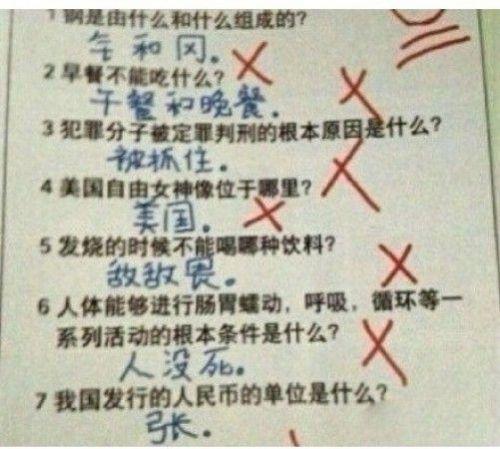 1 钢是由什么和什么组成的?
钅和冈。
2 早餐不能吃什么?
午餐和晚餐.
3 犯罪分子被定罪判刑的根本原因是什么?
被抓住.
4 美国自由女神像位于哪里?
美国.
5 发烧的时候不能喝哪种饮料?
敌敌畏.
6 人体能够进行肠胃蠕动，呼吸，循环等一
系列活动的根本条件是什么?
人没死.
7 我国发行的人民币的单位是什么?
张.